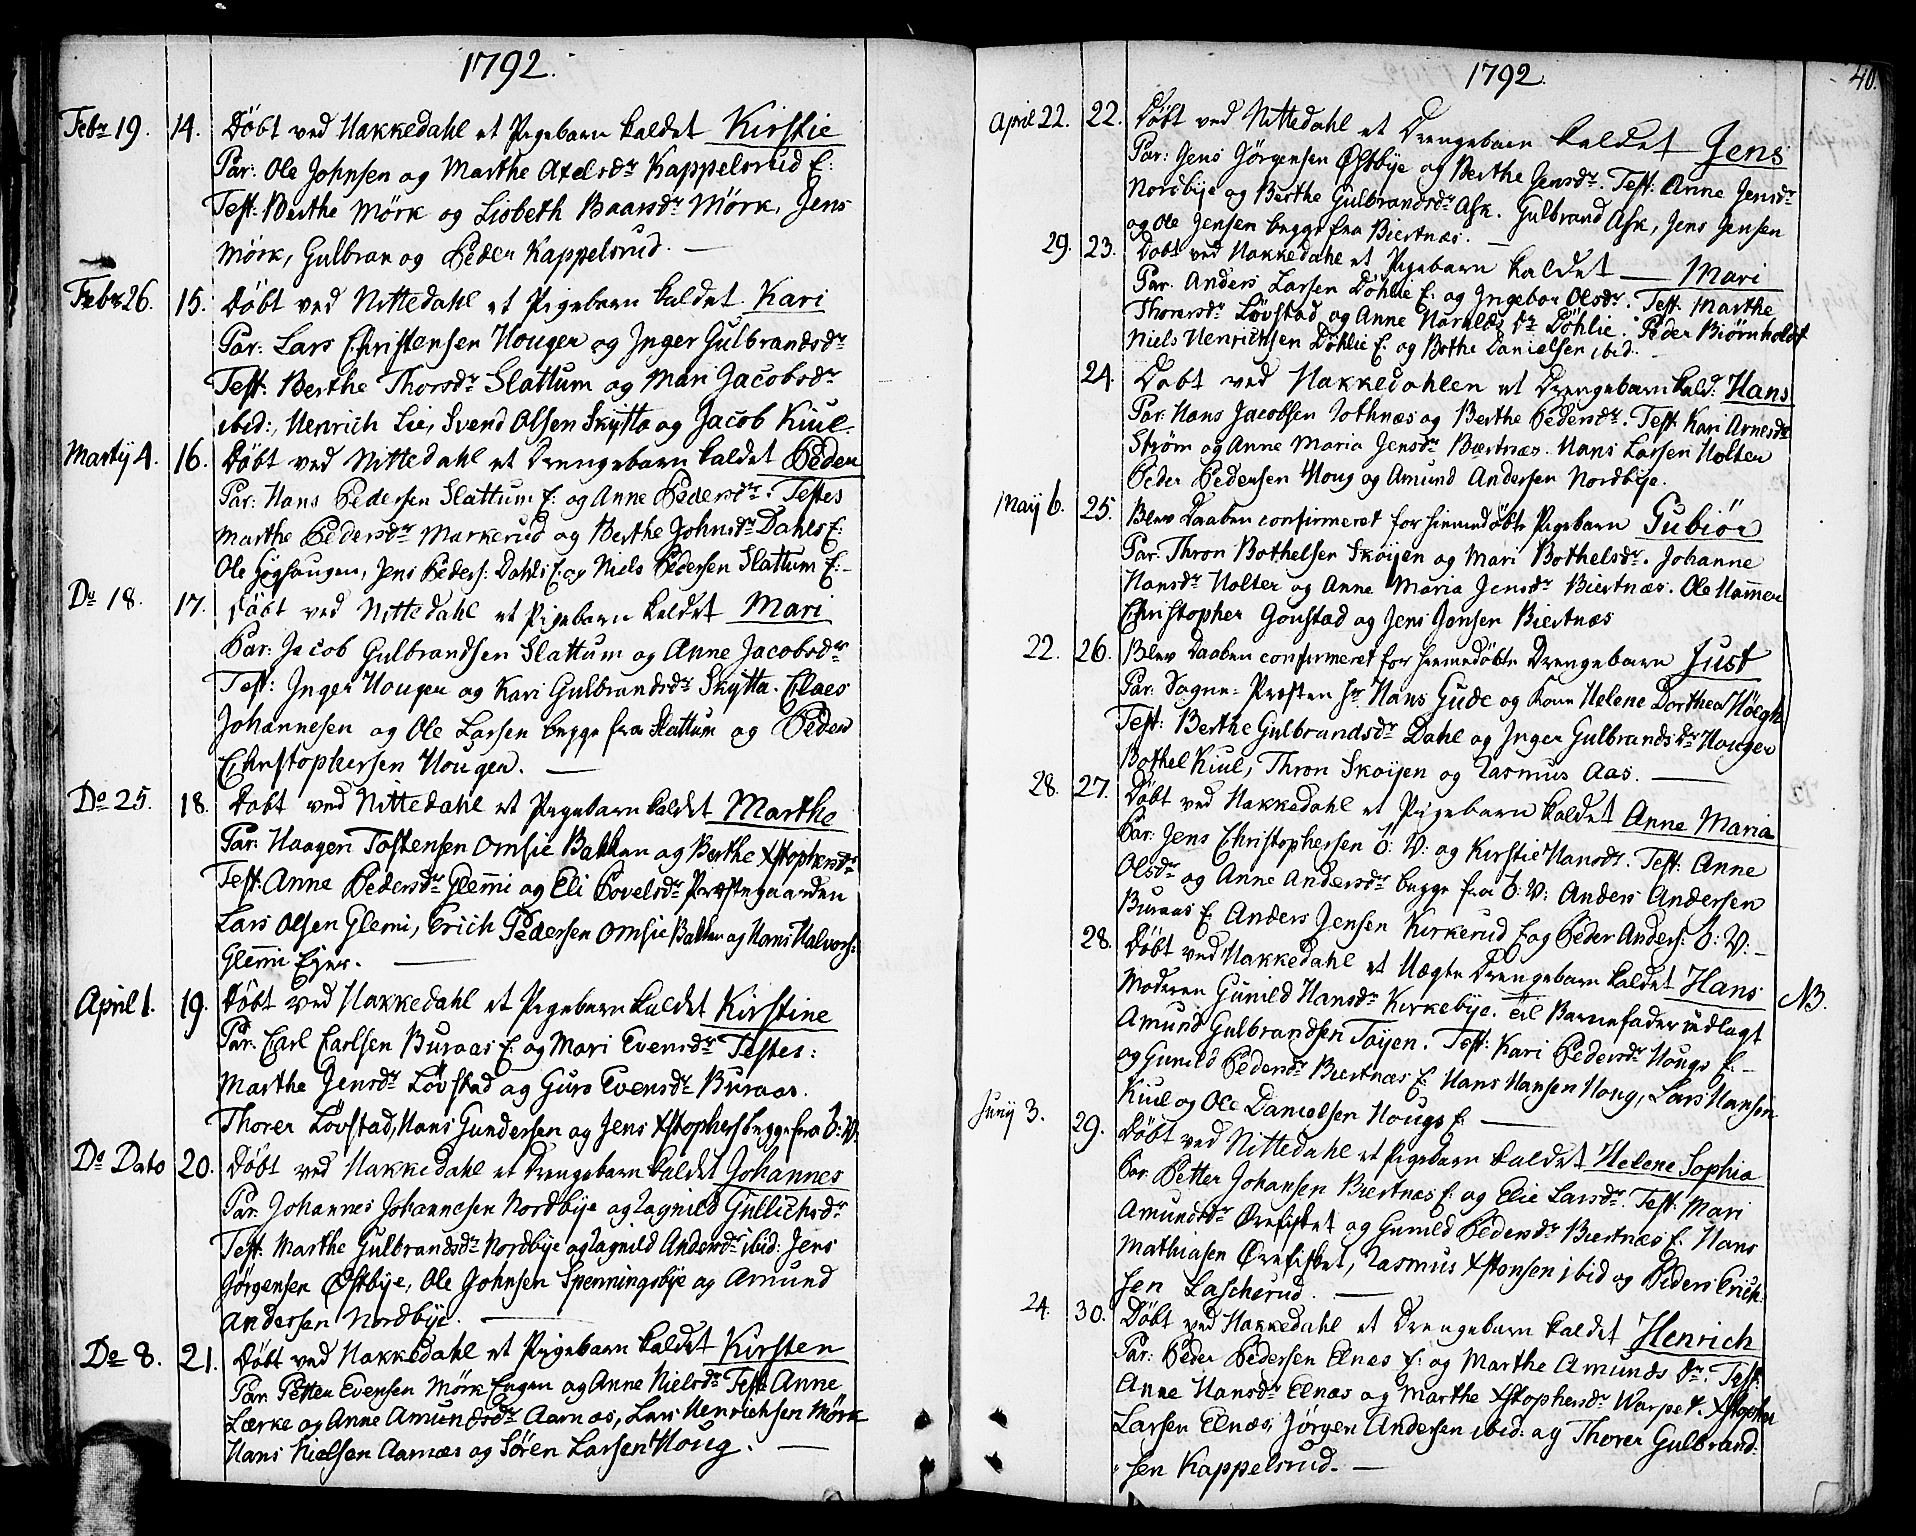 1792.
Febr 19. 14. Döbt ved Hakkedahl et Pigebarn kaldet Kirstie
Par: Ole Johnsen og Marthe Axelsdr Kappelsrud E:
Test: Berthe Mörk og Lisbeth Baarsdr Mörk, Jens
Mörk, Gulbran og Peder Kappelsrud. —
Febr 26. 15. Döbt ved Nittedahl et Pigebarn kaldet Kari
Par: Lars Christensen Hougen og Inger Gulbrandsdr
Test: Berthe Thorsdr Slattum og Mari Jacobsdr
ibid:, Henrich Lie, Svend Olsen Skytta og Jacob Kiul.
Martij 4. 16. Döbt ved Nittedahl et Drengebarn kaldet Peder
Par: Hans Pedersen Slattum E: og Anne Pedersdr. Testes
Marthe Pedersdr Markerud og Berthe Johnsdr Dahls E:
Ole Høghaugen, Jens Peders: Dahls E: og Niels Pedersen Slattum E:-
Do 18. 17. Döbt ved Nittedahl et Pigebarn kaldet Mari
Par: Jacob Gulbrandsen Slattum og Anne Jacobsdr
Test: Inger Hougen og Kari Gulbrandsdr Skytta. Claes
Johannesen og Ole Larsen begge fra Slattum og Peder
Christophersen Hougen. —
Do 25. 18. Döbt ved Nittedahl et Pigebarn kaldet Marthe
Par: Haagen Tostensen Omsie Bakken og Berthe Xstophersdr
Test: Anne Pedersdr Glemmi og Eli Povelsdr Præstegaarden
Lars Olsen Glemi, Erich Pedersen Omsie Bakken og Hans Halvors:
Glemmi Ejer. —
April 1. 19. Döbt ved Hakkedahl et Pigebarn kaldet Kirstine
Par. Carl Carlsen Buraas E: og Mari Evensdr Testes:
Marthe Jensdr Løvstad og Guro Evensdr Buraas.
Thorer Løvstad, Hans Gundersen og Jens Xstophers begge fra O: V:
Do Dato 20. Döbt ved Hakkedahl et Drengebarn kaldet Johannes
Par. Johannes Johannesen Nordbije og Ragnild Gullichsdr
Test: Marthe Gulbrandsdr Nordbije og Ragnild Andersdr ibid: Jens
Jörgensen Østbije, Ole Johnsen Spenningsbije og Amund
Andersen Nordbije. —
Do 8. 21. Döbt ved Hakkedahl et Pigebarn kaldet Kirsten
Par. Petter Evensen Mörk Engen og Anne Nielsdr Test: Anne
Lærke og Anne Amundsdr Aarnæs, Lars Henrichsen Mörk
Hans Nielsen Aarnæs og Sören Larsen Houg. —
1792.
40.
April 22. 22. Döbt ved Nittedahl et Drengebarn kaldet Jens
Par: Jens Jörgensen Østbije og Berthe Jensdr. Test: Anne Jensdr
Nordbije og Berthe Gulbrandsdr Ask. Gulbrand Ask, Jens Jensen
og Ole Jensen begge fra Biertnæs. —
29. 23. Döbt ved Hakkedahl et Pigebarn kaldet — Mari
Par. Anders Larsen Döhlie E: og Ingebor Olsdr. Test: Marthe
Thorersdr Løvstad og Anne Haraldsdr Döhlie. Peder Biørnholdt
Niels Henrichsen Döhlie E: og Bothe Danielsen ibid. —
24. Döbt ved Hakkedahlen et Drengebarn kald. Hans
Par: Hans Jacobsen Rothnæs og Berthe Pedersdr. Test: Kari Arnesdr
Strøm og Anne Maria Jensdr Bærtnæs. Hans Larsen Holter
Peder Pedersen Houg og Amund Andersen Nordbije.
Maij 6. 25. Blev Daaben confirmeret for hiemmedöbte Pigebarn Gubiør
Par: Thron Bothelsen Skøijen og Mari Bothelsdr. Johanne
Hansdr Holter og Anne Maria Jensdr Biertnæs. Ole Hammer
Christopher Gonstad og Jens Jonsen Biertnæs
22. 26. Blev Daaben confirmeret for hiemmedöbte Drengebarn Just
Par: Sogne-Præsten Hr Hans Gude og Kone Helene Dorthea Høegh
Test: Berthe Gulbrandsdr Dahl og Inger Gulbrandsdr Hougen
Bothel Kiul, Thron Skøijen og Rasmus Aas. —
28. 27. Döbt ved Hakkedahl et Pigebarn kaldet Anne Maria
Par: Jens Christophersen O: V: og Kirstie Hansdr. Test: Anne
Olsdr og Anne Andersdr begge fra O: V: Anders Andersen
Buraas E: Anders Jensen Kirkerud E og Peder Anders: O: V:-
28. Döbt ved Hakkedahl et Uægte Drengebarn kaldet Hans
NB.
Moderen Gunild Hansdr Kirkebije. til Barnefader udlagt
Amund Gulbrandsen Tøijen. Test: Kari Pedersdr Hougs E:-
og Gunild Pedersdr Biertnæs E: Hans Hansen Houg, Lars Hansen
Kiul og Ole Danielsen Hougs E. —
Junij 3. 29. Döbt ved Nittedahl et Pigebarn kaldet Helene Sophia
Par. Petter Johansen Biertnæs E: og Elie Larsdr. Test: Mari
Amundsdr Ørefisket og Gunild Pedersdr Biertnæs E: Hans
Mathiasen Ørefisket, Rasmus Xstensen ibid og Peders Erich-
sen Lascherud. —
24. 30. Döbt ved Hakkedahl et Drengebarn kaldet Henrich
Par: Peder Pedersen Elnæs E: og Marthe Amundsdr. Test:
Anne Hansdr Elnæs og Marthe Xstophersdr Warpet. Xstopher
Larsen Elnæs, Jörgen Andersen ibid: og Thorer Gulbrand-
sen Kappelsrud. —